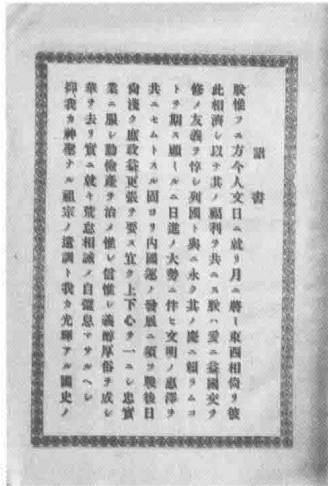 詔書
朕惟フニ方今人文日ニ就リ月ニ將ミ東西相倚リ彼
此相濟シ以テ其ノ福利ヲ共ニス朕ハ爰ニ益國交ヲ
修メ友義ヲ惇シ列國ト與ニ永ク其ノ慶ニ賴ラムコ
トヲ期ス顧ミルニ日進ノ大勢ニ伴ヒ文明ノ惠澤ヲ
共ニセムトスル固ヨリ內國運ノ發展ニ須ツ戰後日
尙淺ク庶政益更張ヲ要ス宜ク上下心ヲ一ニシ忠實
業ニ服シ勤儉產ヲ治メ惟レ信惟レ義醇厚俗ヲ成シ
華ヲ去リ實ニ就キ荒怠相誡メ自彊息マサルヘシ
抑我カ神聖ナル祖宗ノ遺訓ト我カ光輝アル國史ノ